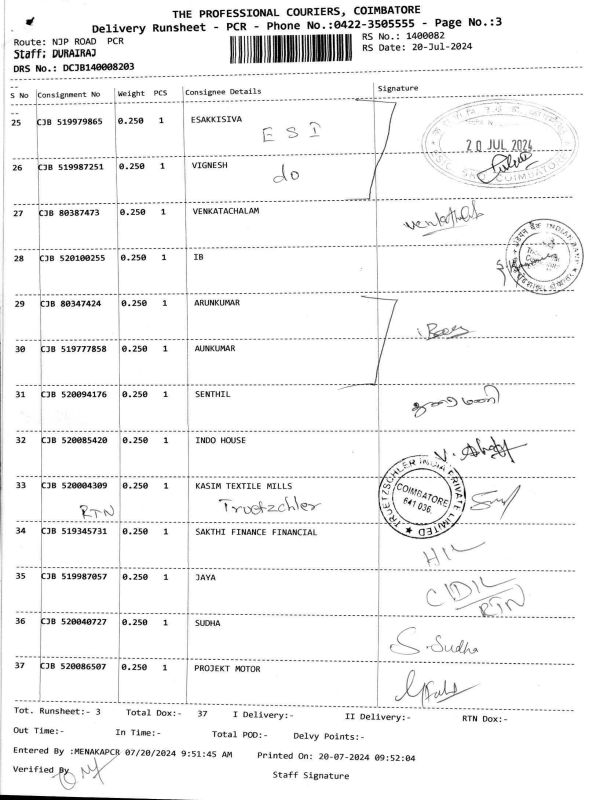 THE PROFESSIONAL COURIERS, COIMBATORE
Delivery Runsheet - PCR - Phone No.:0422-3505555 - Page No.:3
Route: NJP ROAD PCR
RS No.: 1400082
Staff: DURAIRAJ
RS Date: 20-Jul-2024
DRS No.: DCJB140008203
S No Consignment No Weight PCS Consignee Details Signature
25 CJB 519979865 0.250 1 ESAKKISIVA
ESI
20 JUL 2024
26 CJB 519987251 0.250 1 VIGNESH
do
27 CJB 80387473 0.250 1 VENKATACHALAM
28 CJB 520100255 0.250 1 IB
INDIAN BANK
29 CJB 80347424 0.250 1 ARUNKUMAR
30 CJB 519777858 0.250 1 AUNKUMAR
31 CJB 520094176 0.250 1 SENTHIL
32 CJB 520085420 0.250 1 INDO HOUSE
33 CJB 520004309 0.250 1 KASIM TEXTILE MILLS
RTN Truetzchler
TRUETZSCHLER INDIA PRIVATE LIMITED
COIMBATORE
641 036.
34 CJB 519345731 0.250 1 SAKTHI FINANCE FINANCIAL
35 CJB 519987057 0.250 1 JAYA
RTN
36 CJB 520040727 0.250 1 SUDHA
S. Sudha
37 CJB 520086507 0.250 1 PROJEKT MOTOR
Tot. Runsheet:- 3 Total Dox:- 37 I Delivery:- II Delivery:- RTN Dox:-
Out Time:- In Time:- Total POD:- Delvy Points:-
Entered By :MENAKAPCR 07/20/2024 9:51:45 AM Printed On: 20-07-2024 09:52:04
Verified By
Staff Signature